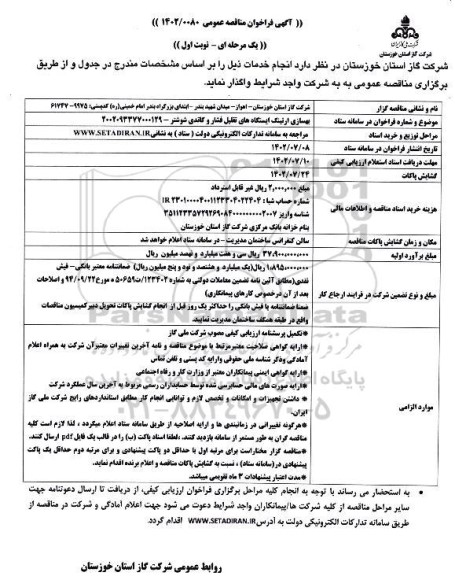 شرکت ملی گاز ایران
شرکت گاز استان خوزستان
(( آگهی فراخوان مناقصه عمومی ۱۴۰۲/۰۰۸۰ ))
(( یک مرحله ای - نوبت اول ))
شرکت گاز استان خوزستان در نظر دارد انجام خدمات ذیل را بر اساس مشخصات مندرج در جدول و از طریق
برگزاری مناقصه عمومی به به شرکت واجد شرایط واگذار نماید.
نام و نشانی مناقصه گزار
شرکت گاز استان خوزستان - اهواز- میدان شهید بندر - ابتدای بزرگراه بندر امام خمینی(ره) کدپستی: ۹۹۷۵-۶۱۷۳۷
موضوع و شماره فراخوان در سامانه ستاد
بهسازی ارتینگ ایستگاه های تقلیل فشار و کاتدی شوشتر – ۲۰۰۲۰۹۳۳۷۷۰۰۰۱۲۹
مراحل توزیع و خرید اسناد
مراجعه به سامانه تدارکات الکترونیکی دولت ( ستاد ) به نشانی WWW.SETADIRAN.IR
تاریخ انتشار فراخوان در سامانه ستاد
۱۴۰۲/۰۷/۰۸
مهلت دریافت اسناد استعلام ارزیابی کیفی
۱۴۰۲/۰۷/۱۰
گشایش پاکات
۱۴۰۲/۰۷/۲۴
هزینه خرید اسناد مناقصه و اطلاعات مالی
مبلغ ۲,۰۰۰,۰۰۰ ریال غیر قابل استرداد
شماره حساب شبا :
شناسه واریز
بنام خزانه بانک مرکزی شرکت گاز استان خوزستان
مکان و زمان گشایش پاکات مناقصه
سالن کنفرانس ساختمان مدیریت – در سامانه ستاد اعلام خواهد شد
مبلغ برآورد اولیه
۳۷,۹۰۰,۰۰۰,۰۰۰ ریال سی و هفت میلیارد و نهصد میلیون ریال
مبلغ و نوع تضمین شرکت در فرایند ارجاع کار
۱,۸۹۵,۰۰۰,۰۰۰ ریال(یک میلیارد و هشتصد و نود و پنج میلیون ریال) ضمانتنامه معتبر بانکی- فیش
نقدی(مطابق آئین نامه تضمین معاملات دولتی به شماره ۱۲۳۴۰۲/ت۵۰۶۵۹ه مورخ ۹۴/۰۹/۲۲ و اصلاحات
بعد از آن درخصوص کارهای پیمانکاری)
ضمنا ضمانتنامه یا فیش بانکی را حداکثر یک روز قبل از انجام گشایش پاکات تحویل دبیر کمیسیون مناقصات
واقع در طبقه همکف ساختمان مدیریت نمایید.
موارد الزامی
*تکمیل پرسشنامه ارزیابی کیفی مصوب شرکت ملی گاز
*ارایه گواهی صلاحیت معتبر مرتبط با موضوع مناقصه و نامه آخرین تغییرات معتبر آن شرکت به همراه اعلام
آمادگی وذکر شناسه ملی حقوقی وارایه کد پستی و تلفن تماس
*ارایه گواهی ایمنی پیمانکاران معتبر از وزارت کار و رفاه اجتماعی
*ارایه صورت های مالی حسابرسی شده توسط حسابداران رسمی مربوط به آخرین سال عملکرد شرکت
* داشتن تجهیزات و امکانات و تخصص لازم و توانایی انجام کار مطابق استانداردهای رایج شرکت ملی گاز
ایران.
*هرگونه تغییراتی در زمانبندی ها و ارایه اصلاحیه از طریق سامانه ستاد اعلام میگردد ، لذا لازم است کلیه
مناقصه گران به طور مستمر از سامانه بازدید کنند. ،لطفا اسناد پاکت (ب) را در قالب یک فایل pdf ارسال کنند.
*مناقصه گزار مختاراست برای مرتبه اول با حداقل دو پاکت پیشنهادی و برای مرتبه دوم حداقل یک پاکت
پیشنهادی در(سامانه ستاد) ، نسبت به گشایش پاکات مناقصه و اعلام برنده اقدام نماید.
*مدت اعتبار پیشنهادات ۳ ماه تقویمی میباشد.
• به استحضار می رساند با توجه به انجام کلیه مراحل برگزاری فراخوان ارزیابی کیفی، از دریافت تا ارسال دعوتنامه جهت
سایر مراحل مناقصه از کلیه شرکت ها/پیمانکاران واجد شرایط دعوت می شود جهت اعلام آمادگی و شرکت در مناقصه از
طریق سامانه تدارکات الکترونیکی دولت به آدرس WWW.SETADIRAN.IR اقدام گردد.
روابط عمومی شرکت گاز استان خوزستان